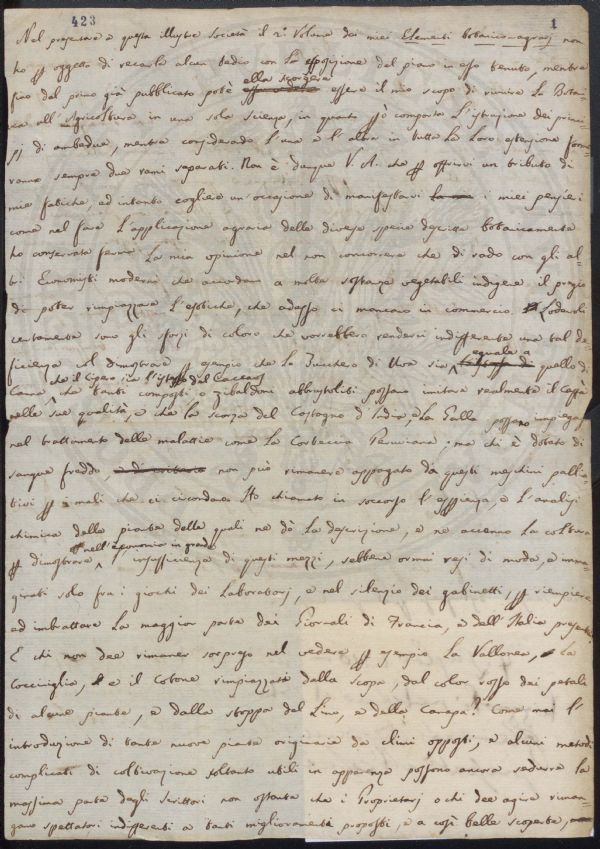 423
1
Nel presentare a questa illustre Società il 2° Volume dei miei Elementi botanico-agrarj non
ho pp oggetto di recarle alcun tedio con la esposizione del piano in esso tenuto, mentre
fino dal primo già pubblicato potè
ella scorgere
essere il mio scopo di riunire la Botani-
ca all'Agricoltura in una sola scienza, in quanto può comporto l'istruzione dei princi-
pj di ambedue, mentre considerando l'una e l'altra in tutta la loro estensione forme-
ranno sempre due rami separati. Non è dunque V. A. che pp offrirvi un tributo di
mie fatiche, ed intanto cogliere un'occasione di manifestarvi i miei pensieri
come nel fare l'applicazione agraria delle diverse specie descritte botanicamente
ho conservata ferma la mia opinione nel non concorrere che di rado con gli al-
tri Economisti moderni che accordano a molte sostanze vegetabili indigene il pregio
di poter rimpiazzare l'esotiche, che adesso ci mancano in commercio. Lodevoli
certamente sono gli sforzi di coloro che vorrebbero renderci indifferente una tal de-
ficienza col dimostrare pp esempio che lo Zucchero di Uva sia
eguale a
quello di
Canna
che il Cipero sia l'istesso del Caccaos
che tanti composti o zibaldoni abbrustoliti possano imitare realmente il Caffè
nelle sue qualità, e che la scorza del Castagno d'India, e la Galla possano impiegarsi
nel trattamento delle malattie come la Corteccia Peruviana; ma chi è dotato di
sangue freddo, non può rimanere appagato da questi meschini pallia-
tivi pp i mali che ci circondano. Ho chiamato in soccorso l'esperienza, e l'analisi
chimica delle piante delle quali ne dò la descrizione, e ne accenno la coltura
pp dimostrare
nell'economia in grande
insufficienza di questi mezzi, sebbene ormai resi di moda, e imma-
ginati solo fra i giochi dei Laboratorj, e nel silenzio dei gabinetti, pp riempiere
ed imbrattare la maggior parte dei Giornali di Francia, e dell'Italia presente.
E chi non dee rimaner sorpreso nel vedere pp esempio la Vallonea, la
Cocciniglia, e il Cotone rimpiazzati dalla scopa, dal color rosso dei petali
di alcune piante, e dalla stoppa del Lino, e della Canapa? Come mai l'
introduzione di tante nuove piante originarie da climi opposti, e alcuni metodi
complicati di coltivazione soltanto utili in apparenza possono ancora sedurre la
massima parte degli scrittori non ostante che i Proprietarj o chi dee agire riman-
gano spettatori indifferenti a tanti miglioramenti proposti, e a così belle scoperte,